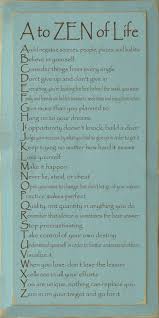 A to ZEN of Life
Avoid negative sources, people, places and habits
Believe in yourself
Consider things from every angle
Don't give up and don't give in
Everything you're looking for lies behind the mask you wear
Family and friends are hidden treasures
Give more than you planned
Hang on to your dreams
If opportunity doesn't knock, build a door
Keep trying no matter how hard it seems
Love yourself
Make it happen
Never lie, steal, or cheat
Open your arms to change, but don't let go of your values
Practice makes perfect
Quality not quantity in anything you do
Remember that silence is sometimes the best answer
Stop procrastinating
Take control of your own destiny
Understand yourself in order to better understand others
Visualize it
When you lose, don't lose the lesson
Xcellence in all your efforts
You are unique, nothing can replace you
Zero in on your target and go for it